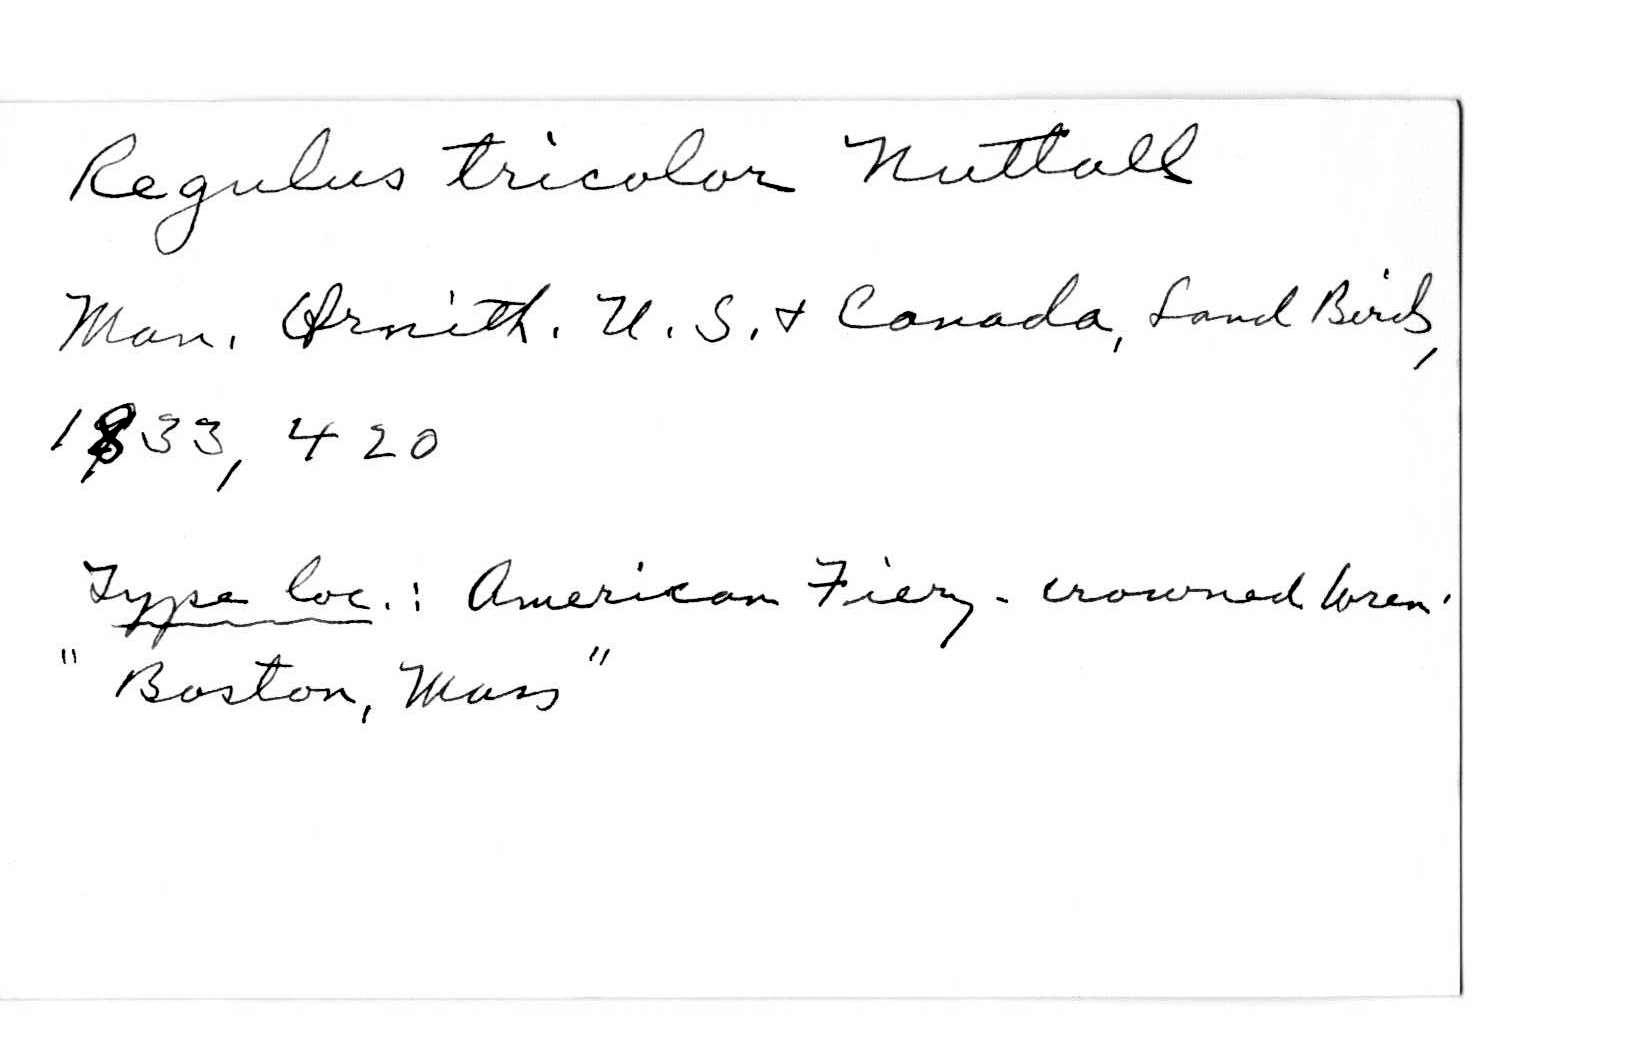 Regulus tricolor Nuttall
Man. Ornith. U.S. & Canada, Land Birds,
1833, 420
Type loc.: American Fiery-crowned Wren.
"Boston, Mass"